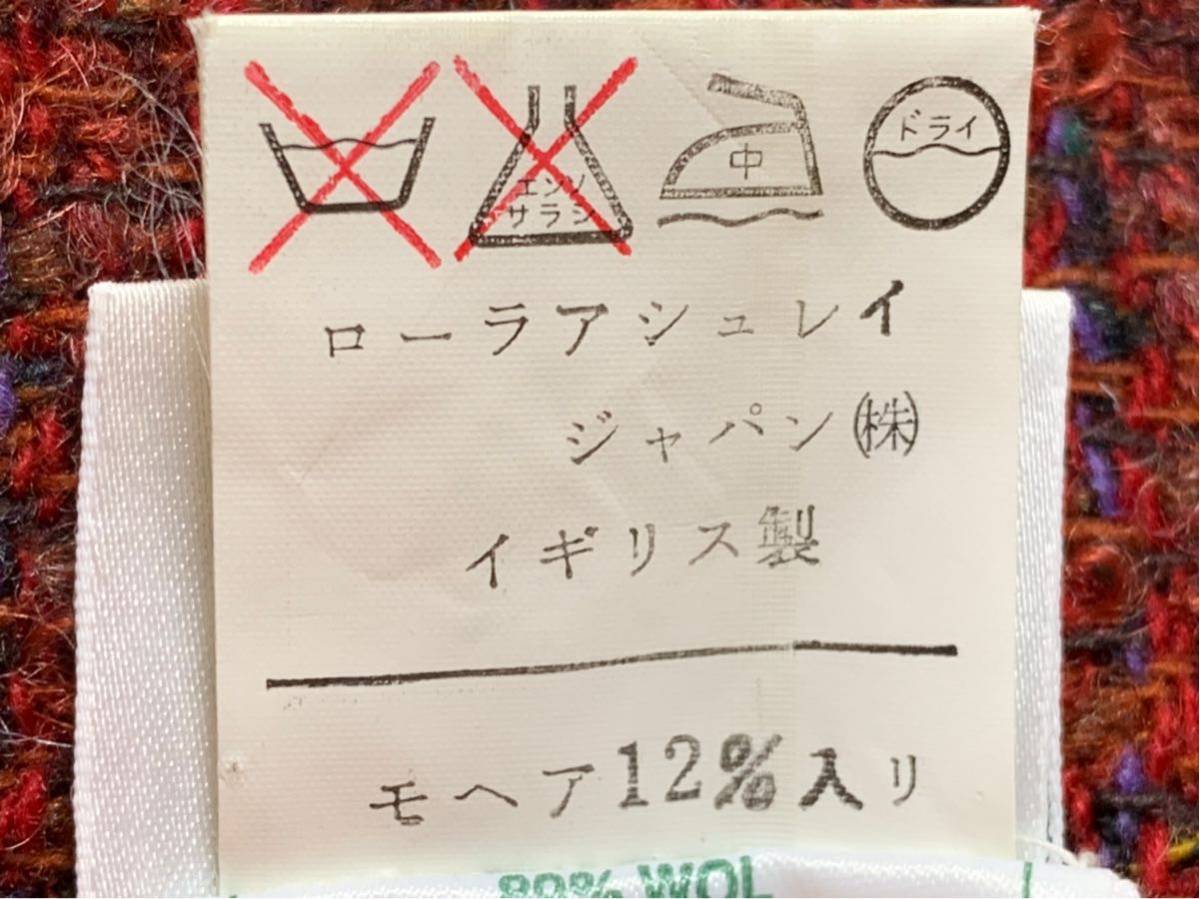 エンソ
サラシ
中
ドライ
ローラアシュレイ
ジャパン㈱
イギリス製
モヘア12%入り